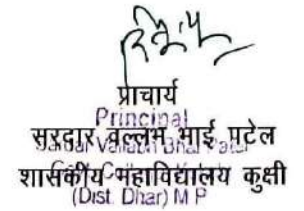 प्राचार्य
Principal
सरदार वल्लभ भाई पटेल
Vallabh Bhai Patel
शासकीय महाविद्यालय कुक्षी
(Dist. Dhar) M P